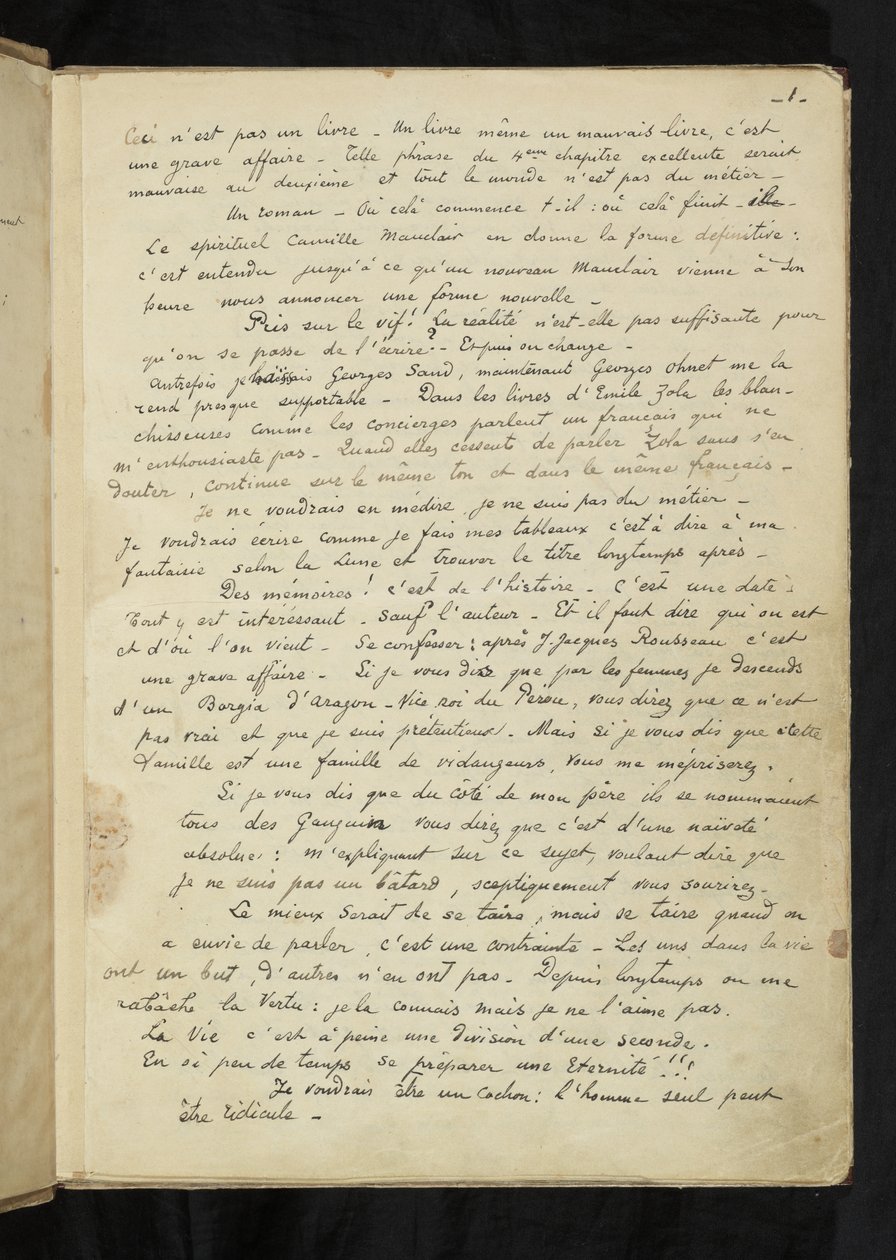 -1-
Ceci n'est pas un livre - Un livre même un mauvais livre, c'est
une grave affaire - Telle phrase du 4eme chapitre excellente serait
mauvaise au deuxième et tout le monde n'est pas du métier -
Un roman - Où celà commence t-il : où celà finit -
Le spirituel Camille Mauclair en donne la forme définitive :
c'est entendu jusqu'à ce qu'un nouveau Mauclair vienne à son
heure nous annoncer une forme nouvelle -
Pris sur le vif! La réalité n'est-elle pas suffisante pour
qu'on se passe de l'écrire? - Et puis on change -
Autrefois je haïssais Georges Sand, maintenant Georges Ohnet me la
rend presque supportable - Dans les livres d'Emile Zola les blan-
chisseuses comme les concierges parlent un francais qui ne
m'enthousiaste pas - Quand elles cessent de parler Zola sans s'en
douter, continue sur le même ton et dans le même français -
Je ne voudrais en médire, je ne suis pas du métier -
Je voudrais écrire comme je fais mes tableaux c'est à dire à ma
fantaisie selon la Lune et trouver le titre longtemps après -
Des mémoires! c'est de l'histoire - C'est une date :
Tout y est intéréssant - Sauf l'auteur - Et il faut dire qui on est
et d'où l'on vient - Se confesser : après J. Jacques Rousseau c'est
une grave affaire - Si je vous dis que par les femmes je descends
d'un Borgia d'Aragon - Vice roi du Pérou, vous direz que ce n'est
pas vrai et que je suis prétentieux - Mais si je vous dis que cette
famille est une famille de vidangeurs, vous me mépriserez.
Si je vous dis que du côté de mon père ils se nommaient
tous des Gauguin vous direz que c'est d'une naïveté
absolue : m'expliquant sur ce sujet, voulant dire que
je ne suis pas un bâtard, sceptiquement vous sourirez -
Le mieux serait de se taire, mais se taire quand on
a envie de parler, c'est une contrainte - Les uns dans la vie
ont un but, d'autres n'en ont pas - Depuis longtemps on me
rabâche la Vertu : je la connais mais je ne l'aime pas.
La Vie c'est à peine une division d'une seconde.
En si peu de temps se préparer une Eternité!!!
Je voudrais être un cochon : l'homme seul peut
être ridicule -